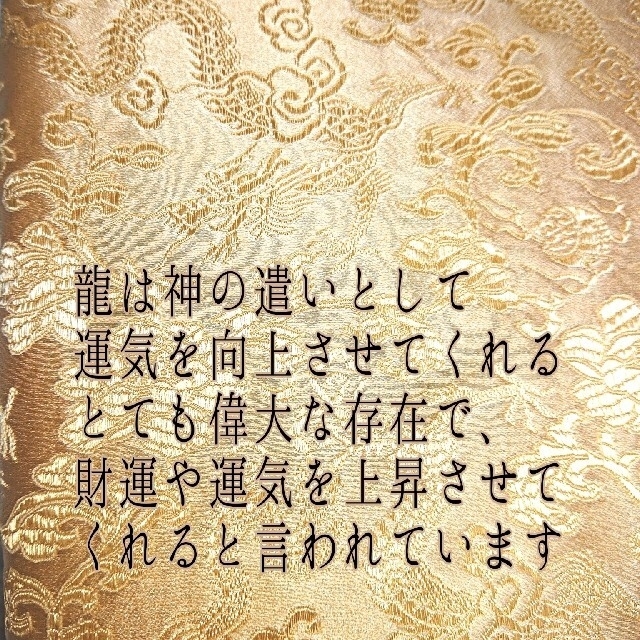 龍は神の遣いとして
運気を向上させてくれる
とても偉大な存在で、
財運や運気を上昇させて
くれると言われています